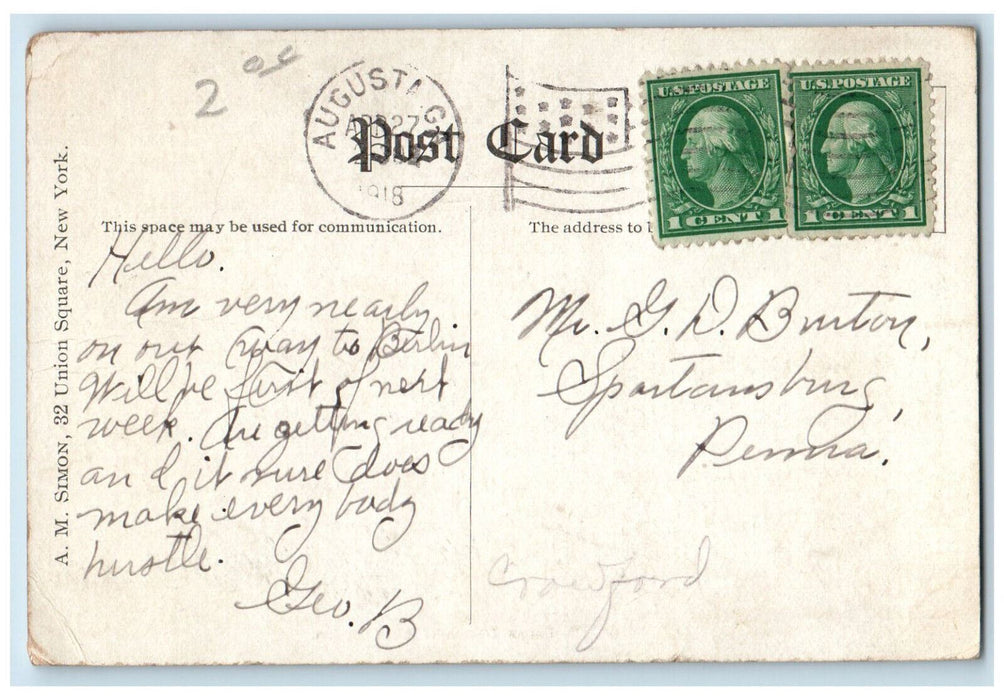 2 00
AUGUSTA, GA
APR 27
1918
Post Card
U.S. POSTAGE
1 CENT 1
U.S. POSTAGE
1 CENT 1
A. M. SIMON, 32 Union Square, New York.
This space may be used for communication.
Hello.
Am very nearly
on our way to Berlin
Will be first of next
week. Are getting ready
and it sure does
make every body
hustle.
Geo. B
The address to b
Mr. G. D. Burton,
Spartansburg,
Penna.
Crawford